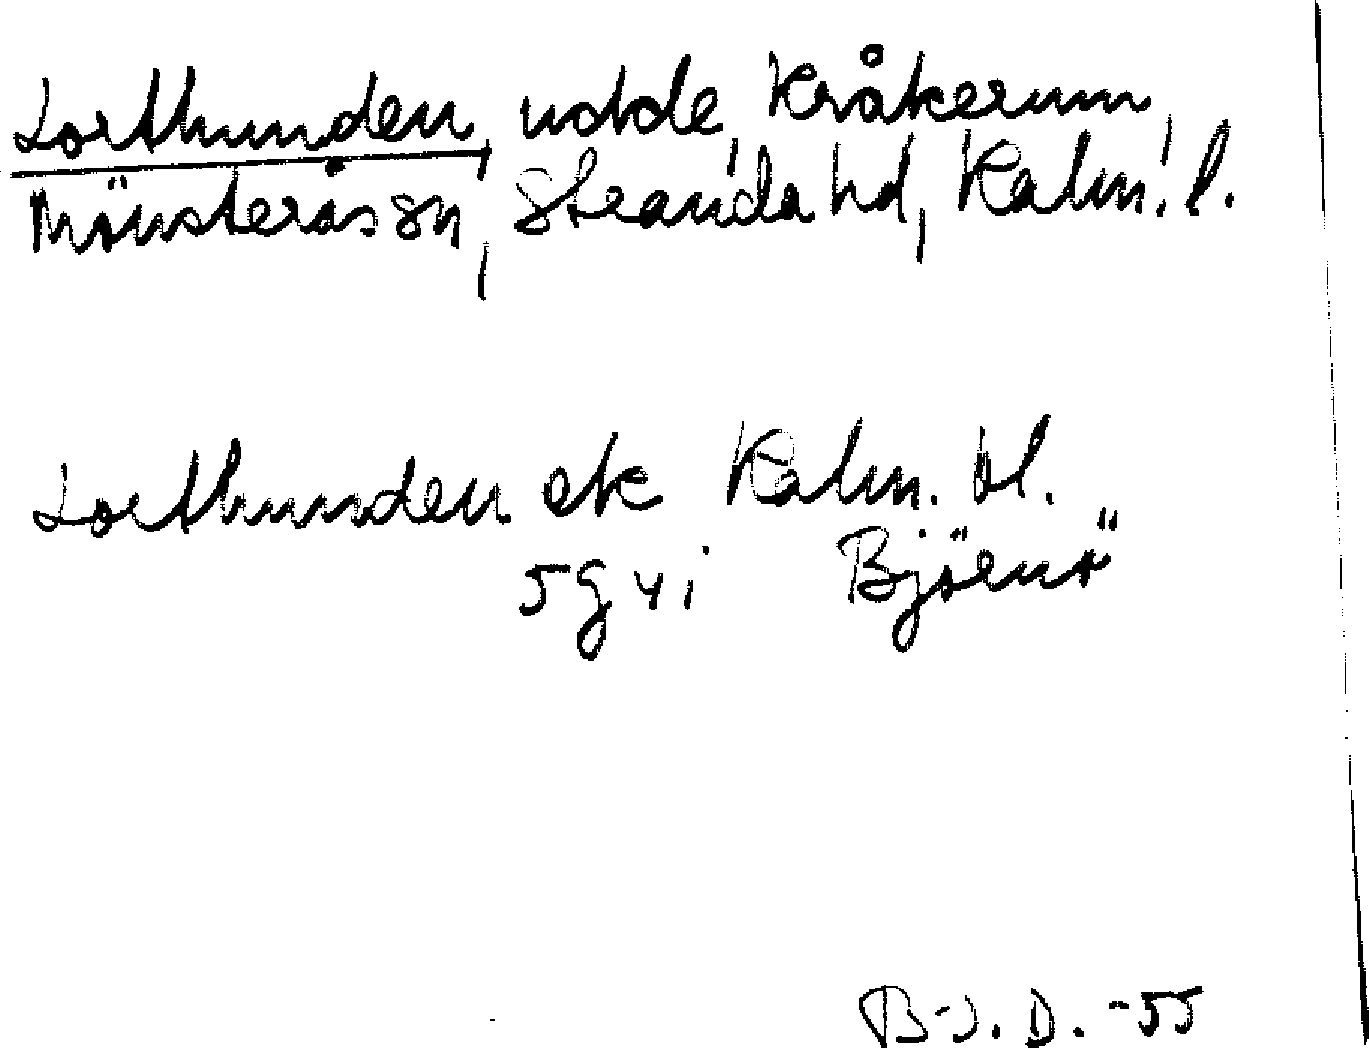 Lorthunden, udde, Kråkerum,
Mönsterås sn, Stranda hd, Kalm. l.
Lorthunden ek Kalm. bl.
5g 4i Björnö
B-J. D. -55